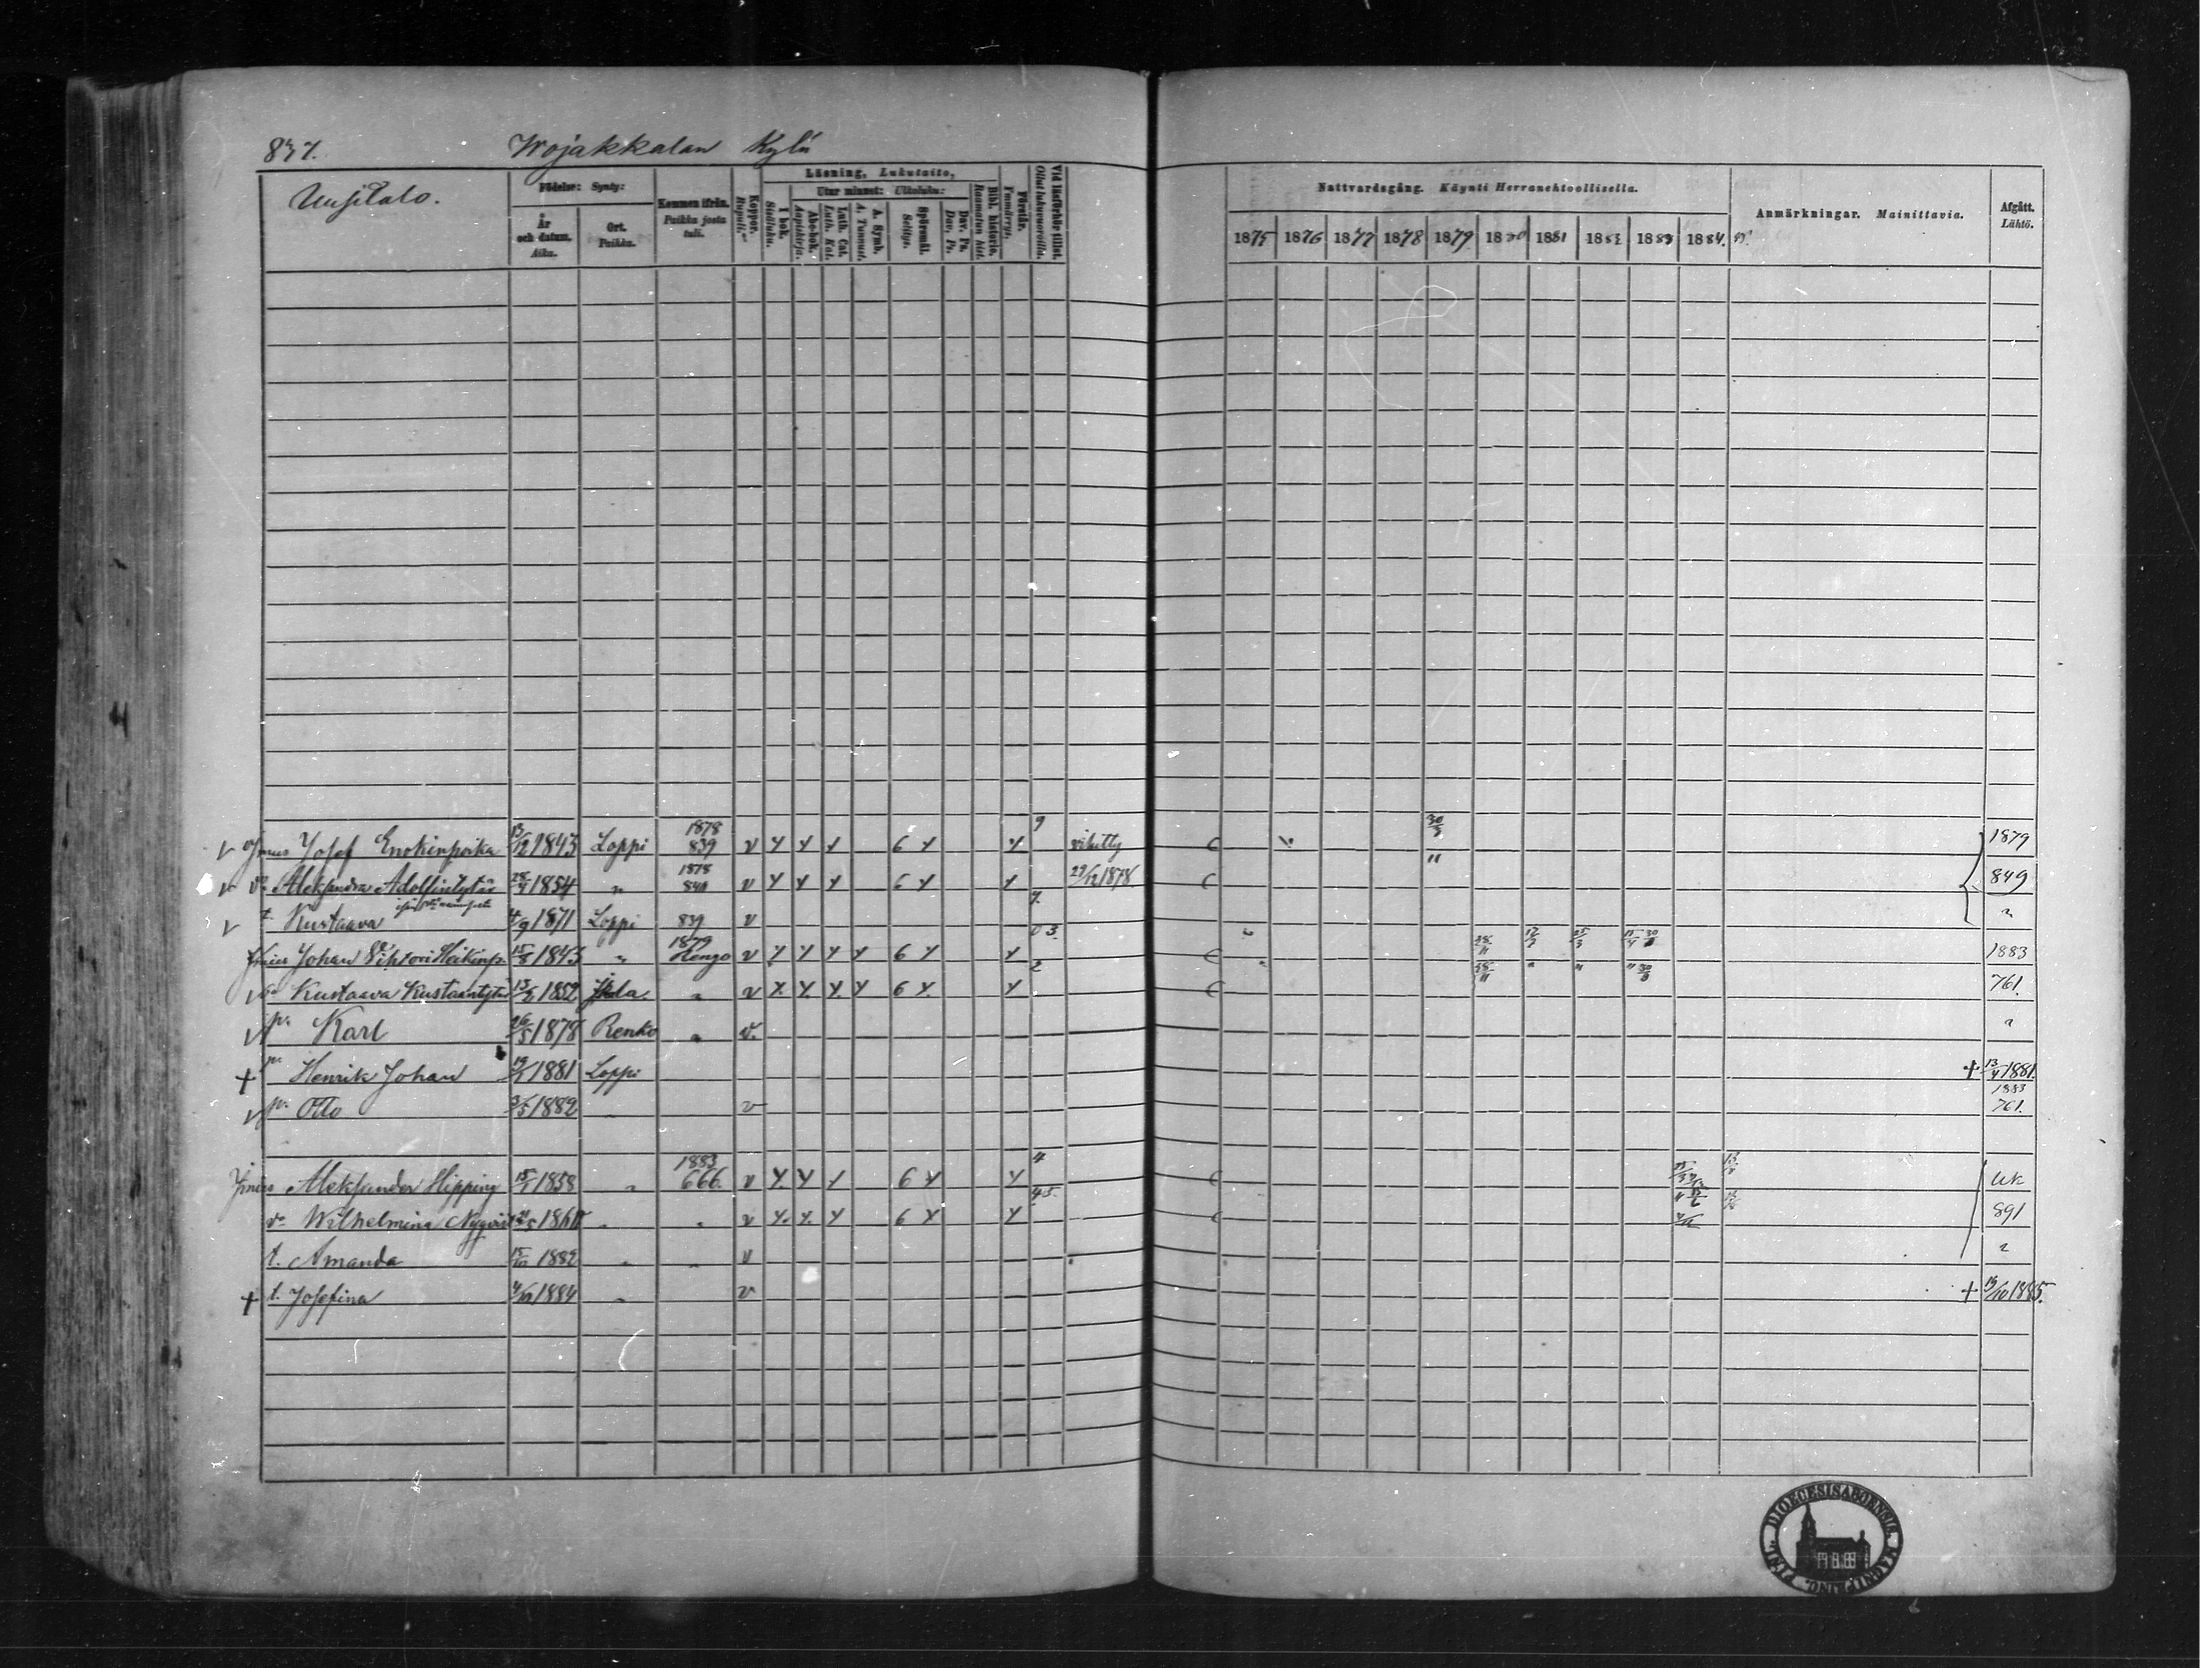 837. Wojakkalan Kylä
Uusitalo.
Födelse: Synty:
År och datum. Aika.
Ort. Paikka.
Kommen ifrån. Paikka josta tuli.
Koppor. Rupuli.
Läsning, Lukutaito,
I bok. Sisäluku.
Utur minnet: Ulkoluku:
Abc-bok. Aapiskirja.
Luth. Cat. Luth. Kat.
A. Symb. A. Tunnust.
Spörsmål. Selitys.
Dav. Ps. Dav. Ps.
Bibl. historie. Raamatun hist.
Förstår. Ymmärrys.
Vid läsförhör tillst. Ollut lukuvuoroilla.
Nattvardsgång. Käynti Herranehtoollisella.
1875 1876 1877 1878 1879 1880 1881 1882 1883 1884. 85.
Anmärkningar. Mainittavia.
Afgått. Lähtö.
Josef Enokinpoika 13/12 1843 Loppi 1878 839 v 6 9 vihitty 30/3 1879
vo Aleksandra Adolfintytär 28/4 1854 " 1878 840 v 6 7. 27/12 1878 " 849
t. Kustaava 4/9 1871 Loppi 839 v "
Johan Vihtori Heikinp. 15/8 1843 " 1879 Hengo v 6 03. 1883
vo Kustaava Kustaantytär 1852 " v 6 2 761.
p. Karl 26/5 1878 Renko " v. "
+ p. Henrik Johan 1881 Loppi + 13/4 1881.
p. Otto 3/5 1882 " v 1883 761.
Aleksander Hipping 15/1 1858 " 1883 666. v 6 4 Uk
vo Wilhelmina Nyqvist " " v 6 45. 891
t. Amanda 15/10 1882 " " v "
+ t. Josefina 4/10 1884 " v + 19/10 1885.
FINL. DIOECESIS ABOENSIS. MAGNI PRINC.